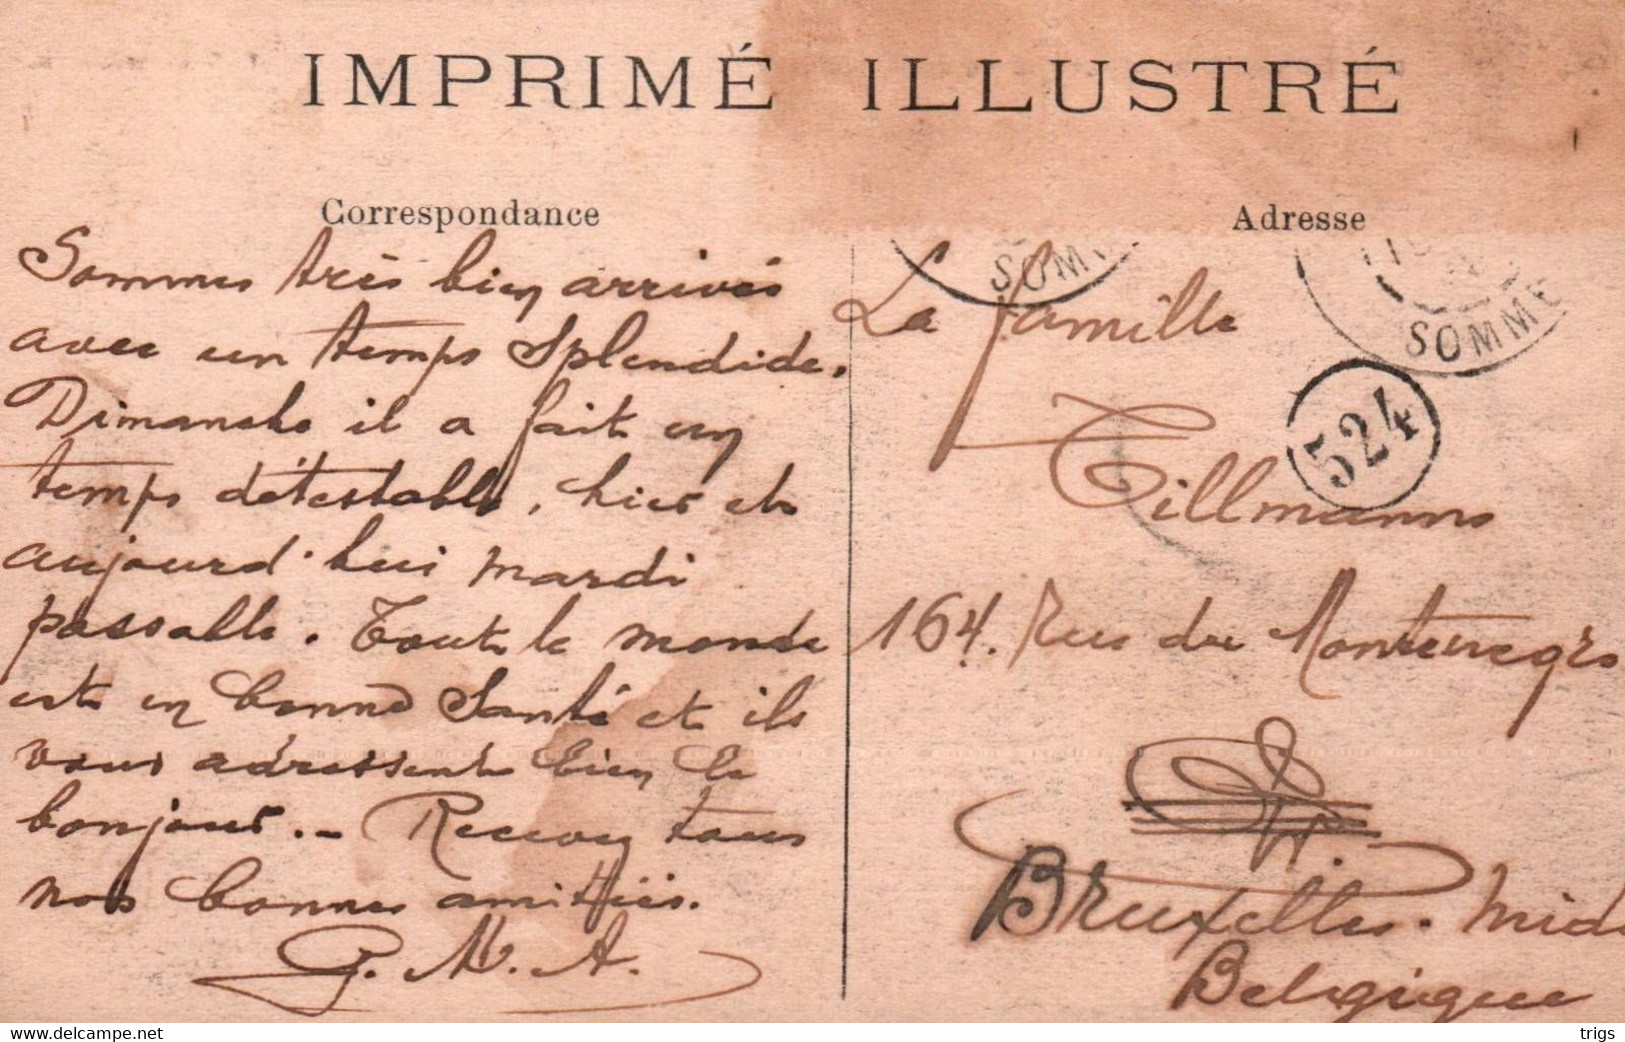 IMPRIMÉ ILLUSTRÉ
Correspondance
Sommes très bien arrivés
avec un temps Splendide.
Dimanche il a fait un
temps détestable, hier et
aujourd'hui mardi
passable. Tout le monde
est en bonne Santé et ils
vous adressent bien le
bonjour. – Recevez tous
nos bonnes amitiés.
G. M. A.
Adresse
SOMME
SOMME
524
La famille
Tillmanns
164. Rue du Montenegro
Bruxelles. Midi
Belgique
trigs
delcampe.net